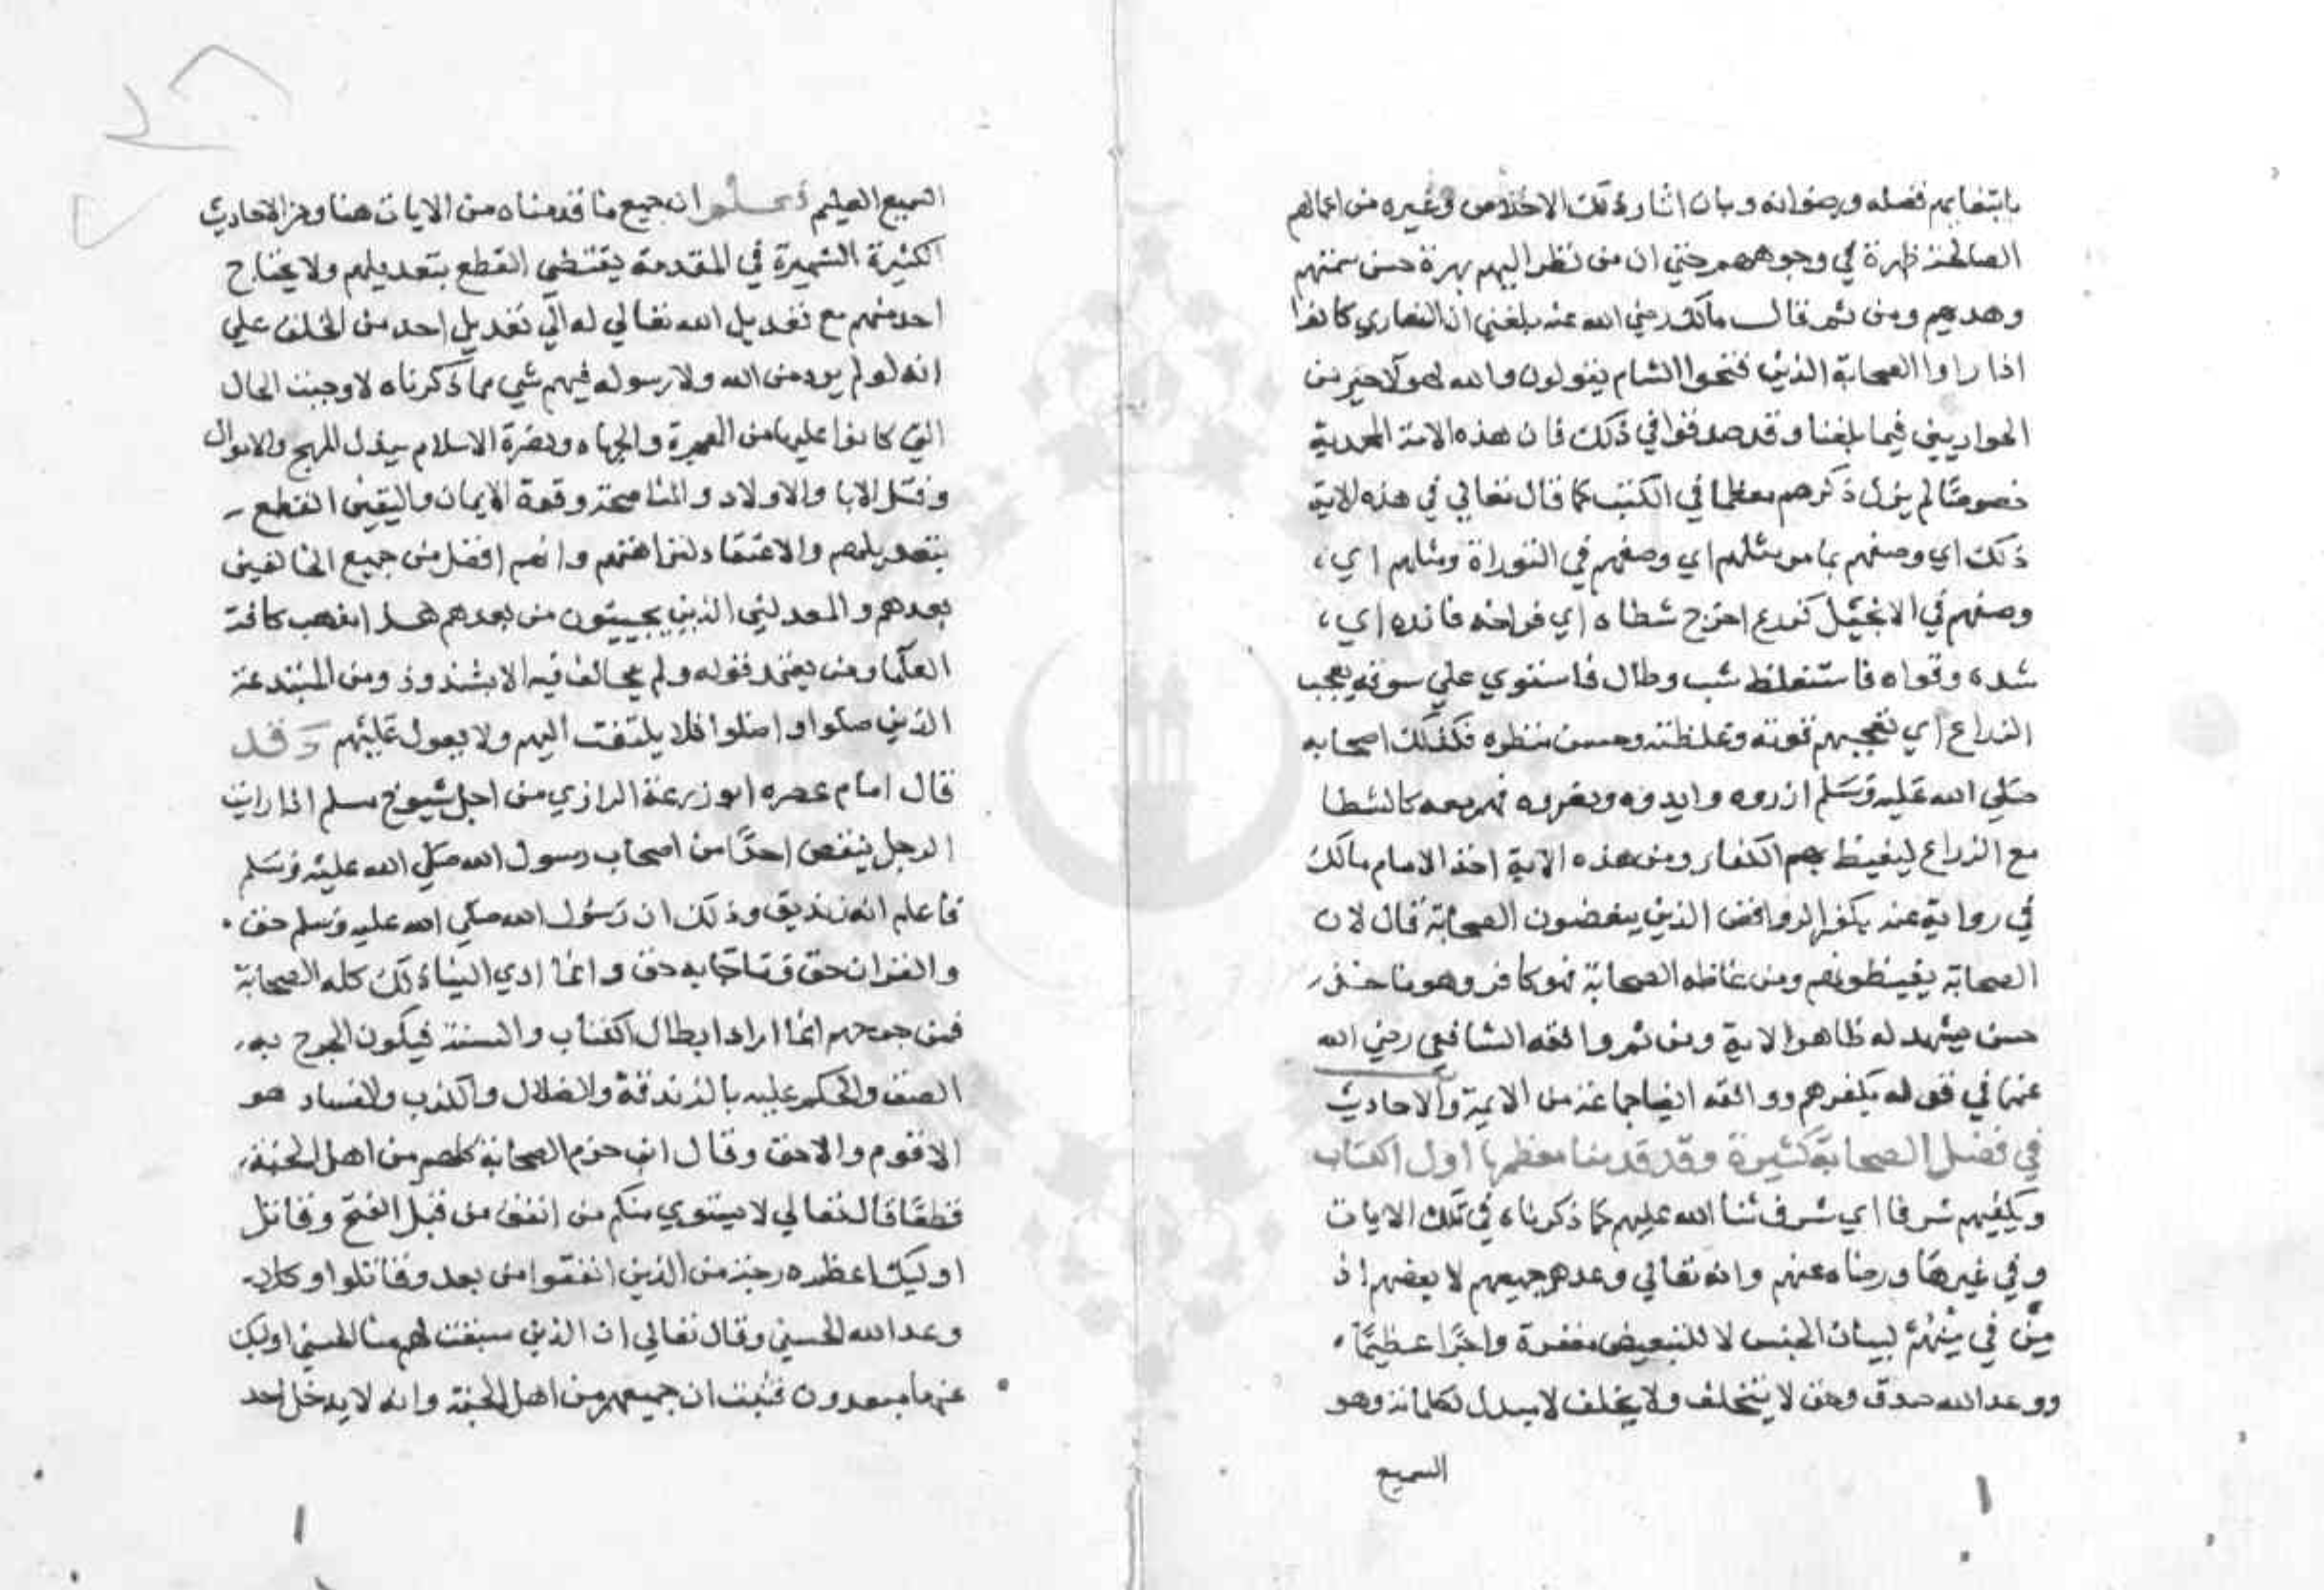 بابتغايهم فضله ورضوانه وبان اثار ذلك الاخلاص وغيره من اعمالهم
الصالحة ظهرة في وجوههم حتي ان من نظر اليهم بهرة حسن سمتهم
وهديهم ومن ثم قال مالك رضي الله عنه بلغني ان النصاري كانوا
اذا راوا الصحابة الذين فتحوا الشام يقولون والله لهولآ خير من
الحواريين فيما بلغنا وقد صدقوا في ذلك فان هذه الامة المحمدية
خصوصًا لم يزل ذكرهم معظما في الكتب كما قال تعالي في هذه الاية
ذلك اي وصفهم بما مر مثلهم اي وصفهم في التوراة ومثلهم اي،
وصفهم في الانجيل كزرع اخرج شطاه اي فراخه فازره اي،
شده وقواه فاستغلظ شب وطال فاستوي علي سوقه يعجب
الزراع اي تعجبهم قوته وغلظته وحسن منظره فكذلك اصحابه
صلي الله عليه وسلم ازروه وايدوه ونصروه فهم معه كالشطا
مع الزراع ليغيظ بهم الكفار ومن هذه الاية اخذ الامام مالك
في رواية عنه بكفر الروافض الذين يبغضون الصحابة قال لان
الصحابة يغيظونهم ومن غاظه الصحابة فهو كافر وهو ماخذ
حسن يشهد له ظاهر الاية ومن ثم وافقه الشافعي رضي الله
عنهما في قوله بكفرهم ووافقه ايضا جماعة من الايمة والاحاديث
في فضل الصحابة كثيرة وقد قدمنا معظمها اول الكتاب
ويكفيهم شرفا اي شرف ثنا الله عليهم كما ذكرناه في تلك الايات
وفي غيرها ورضاه عنهم وانه تعالي وعدهم جميعهم لا بعضهم اذ
من في منهم لبيان الجنس لا للتبعيض مغفرة واجرا عظيما،
ووعد الله صدق وحق لا يتخلف ولا يخلف لا مبدل لكلماته وهو
السميع
السميع العليم فعلم ان جميع ما قدمناه من الايات هنا ومن الاحاديث
الكثيرة الشهيرة في المقدمة يقتضي القطع بتعديلهم ولا يحتاج
احد منهم مع تعديل الله تعالي له الي تعديل احد من الخلف علي
انه لو لم يرد من الله ولا رسوله فيهم شي مما ذكرناه لاوجبت الحال
التي كانوا عليها من الهجرة والجهاد ونصرة الاسلام ببذل المهج والاموال
وقتل الابا والاولاد والمناصحة وقوة الايمان واليقين القطع
بتعديلهم والاعتقاد لنزاهتهم وانهم افضل من جميع الخالفين
بعدهم والمعدلين الذين يجييون من بعدهم هذا مذهب كافة
العلما ومن يعتمد قوله ولم يخالف فيه الا شذوذ ومن المبتدعة
الذين ضلوا واضلوا فلا يلتفت اليهم ولا يعول عليهم وقد
قال امام عصره ابو زرعة الرازي من اجل شيوخ مسلم اذا رايت
الرجل ينتقص احدًا من اصحاب رسول الله صلي الله عليه وسلم
فاعلم انه زنديق وذلك ان رسول الله صلي الله عليه وسلم حق
والقران حق وما جا به حق وانما ادي الينا ذلك كله الصحابة
فمن جرحهم انما اراد ابطال الكتاب والسنة فيكون الجرح به
الصق والحكم عليه بالزندقة والضلال والكذب والفساد هو
الاقوم والاحق وقال ابن حزم الصحابة كلهم من اهل الجنة
قطعًا قال تعالي لا يستوي منكم من انفق من قبل الفتح وقاتل
اوليك اعظم درجة من الذين انفقوا من بعد وقاتلوا وكلا
وعد الله الحسني وقال تعالي ان الذين سبقت لهم منا الحسني اوليك
عنها مبعدون فثبت ان جميعهم من اهل الجنة وانه لا يدخل احد